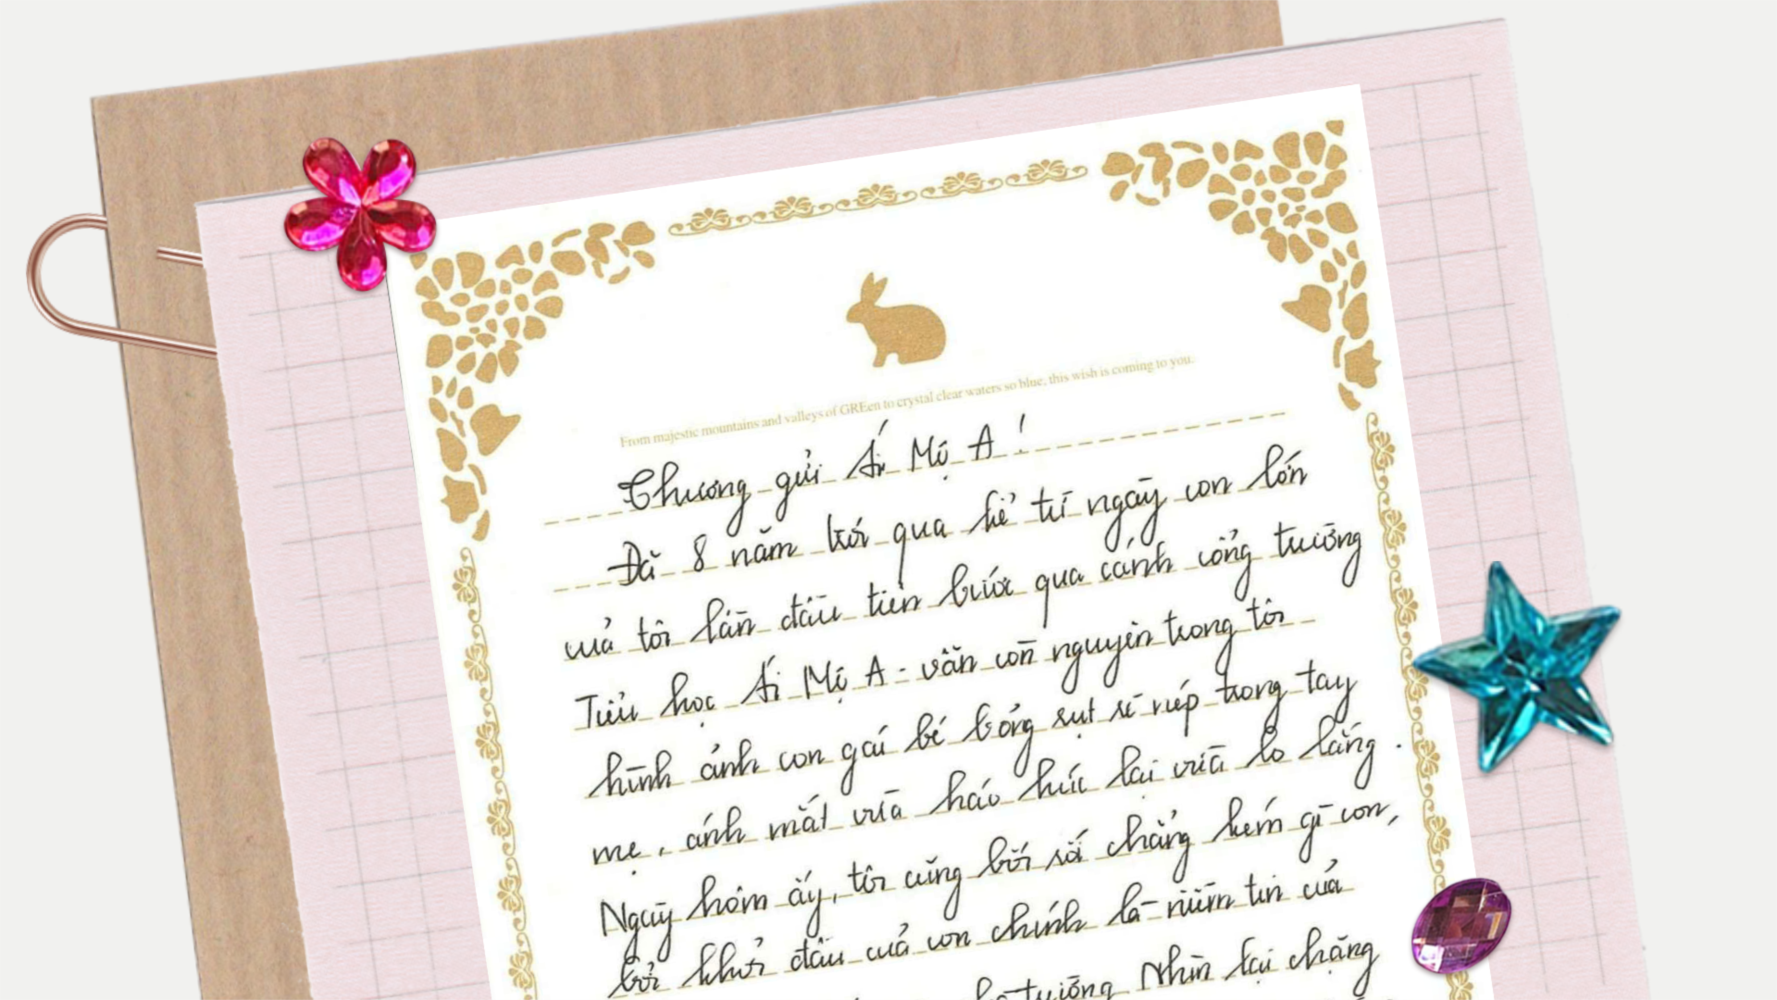 From majestic mountains and valleys of GREen to crystal clear waters so blue, this wish is coming to you.
Thương gửi Ái Mộ A!
Đã 8 năm trôi qua kể từ ngày con lớn
của tôi lần đầu tiên bước qua cánh cổng trường
Tiểu học Ái Mộ A - vẫn còn nguyên trong tôi
hình ảnh con gái bé bỏng sụt sì nép trong tay
mẹ, ánh mắt vừa háo hức lại vừa lo lắng.
Ngày hôm ấy, tôi cũng bối rối chẳng kém gì con,
bởi khởi đầu của con chính là niềm tin của
tưởng Nhìn lại chặng